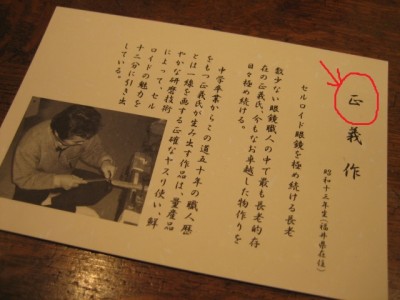 正義作
昭和十三年生(福井県在住)
セルロイド眼鏡を極め続ける長老
数少ない眼鏡職人の中で最も長老的存
在の正義氏、今もなお卓越した物作りを
日々極め続ける。
中学卒業からこの道五十年の職人歴
をもつ正義氏が生み出す作品は、量産品
とは一線を画する正確なヤスリ使い、鮮
やかな研磨技術
によって、セル
ロイドの魅力を
十二分に引き出
している。